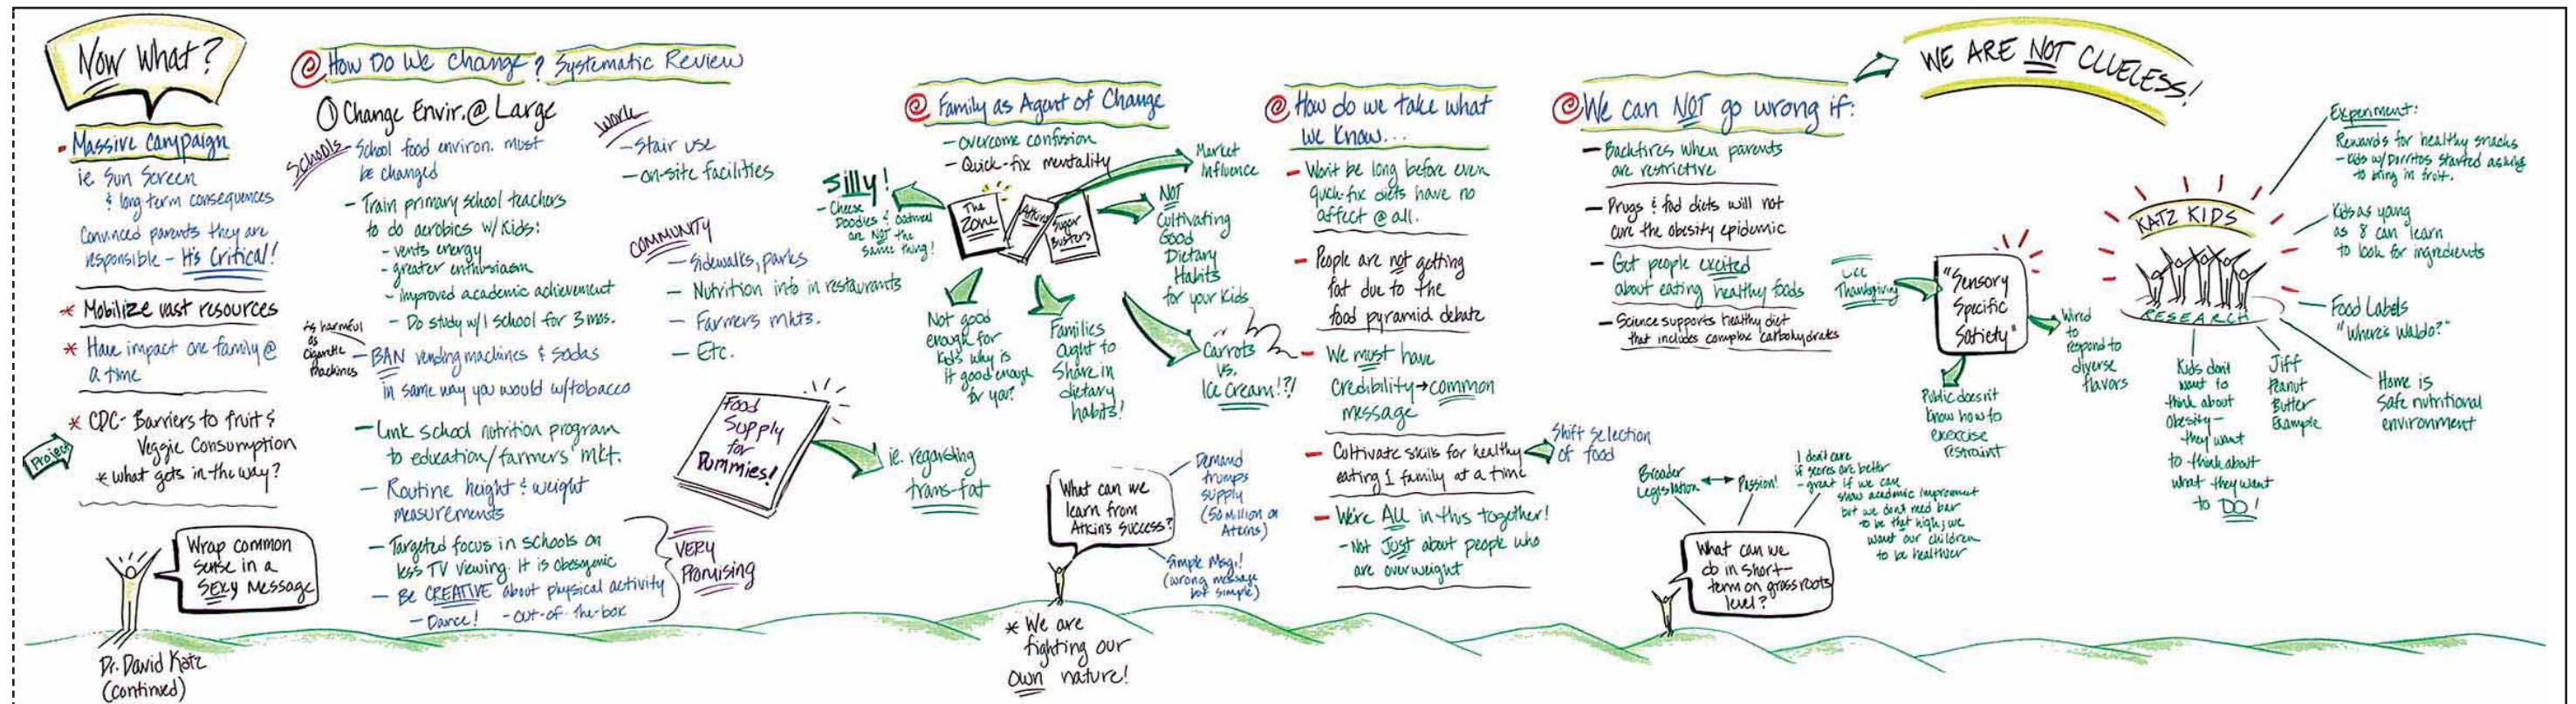 Now What?
- Massive Campaign
ie. Sun Screen
& long term consequences
Convinced parents they are
responsible - It's Critical!
* Mobilize vast resources
* Have impact one family @
a time
Project
* CDC - Barriers to fruit &
Veggie Consumption
* what gets in the way?
Wrap common
sense in a
SExy Message
Dr. David Katz
(continued)
@ How Do We Change? Systematic Review
① Change Envir. @ Large
Schools
- School food environ. must
be changed
- Train primary school teachers
to do aerobics w/kids:
- vents energy
- greater enthusiasm
- improved academic achievement
- Do study w/1 school for 3 mos.
As harmful
as
Cigarette
Machines
- BAN vending machines & sodas
in same way you would w/tobacco
- Link school nutrition program
to education/farmers' mkt.
- Routine height & weight
measurements
- Targeted focus in schools on
less TV viewing. It is obesogenic
- Be CREATIVE about physical activity
- Dance! - out-of-the-box
VERY
Promising
Work
- Stair use
- on-site facilities
COMMUNITY
- Sidewalks, parks
- Nutrition info in restaurants
- Farmers mkts.
- Etc.
Food
Supply
for
Dummies!
ie. regarding
trans-fat
@ Family as Agent of Change
- overcome confusion
- Quick-fix mentality
Silly!
- Cheese
Doodles & oatmeal
are NOT the
same thing!
The
Zone
Atkins
Sugar
Busters
Market
Influence
NOT
Cultivating
Good
Dietary
Habits
for your kids
Not good
enough for
kids why is
it good enough
for you?
Families
ought to
Share in
dietary
habits!
Carrots
vs.
Ice Cream!?!
What can we
learn from
Atkin's success?
Demand
trumps
supply
(50 Million on
Atkins)
Simple Msg.!
(wrong message
but simple)
* We are
fighting our
own nature!
@ How do we take what
we know...
- Won't be long before even
quick-fix diets have no
affect @ all.
- People are not getting
fat due to the
food pyramid debate
- We must have
credibility → common
message
- Cultivate skills for healthy
eating 1 family at a time
Shift selection
of food
- We're ALL in this together!
- Not Just about people who
are overweight
@ We can NOT go wrong if:
- Backfires when parents
are restrictive
- Drugs & fad diets will not
cure the obesity epidemic
- Get people excited
about eating healthy foods
- Science supports healthy diet
that includes complex carbohydrates
WE ARE NOT CLUELESS!
Thanksgiving
"Sensory
Specific
Satiety"
Wired
to
respond to
diverse
flavors
Public doesn't
know how to
exercise
restraint
Broader
Legislation
Passion!
I don't care
if scores are better
- great if we can
show academic improvement
but we don't need bar
to be that high; we
want our children
to be healthier
What can we
do in short-
term on grass roots
level?
KATZ KIDS
RESEARCH
Experiment:
Rewards for healthy snacks
- kids w/Dorritos started asking
to bring in fruit.
Kids as young
as 8 can learn
to look for ingredients
Food Labels
"Where's Waldo?"
Home is
safe nutritional
environment
Jiff
Peanut
Butter
Example
Kids don't
want to
think about
obesity -
they want
to think about
what they want
to DO!